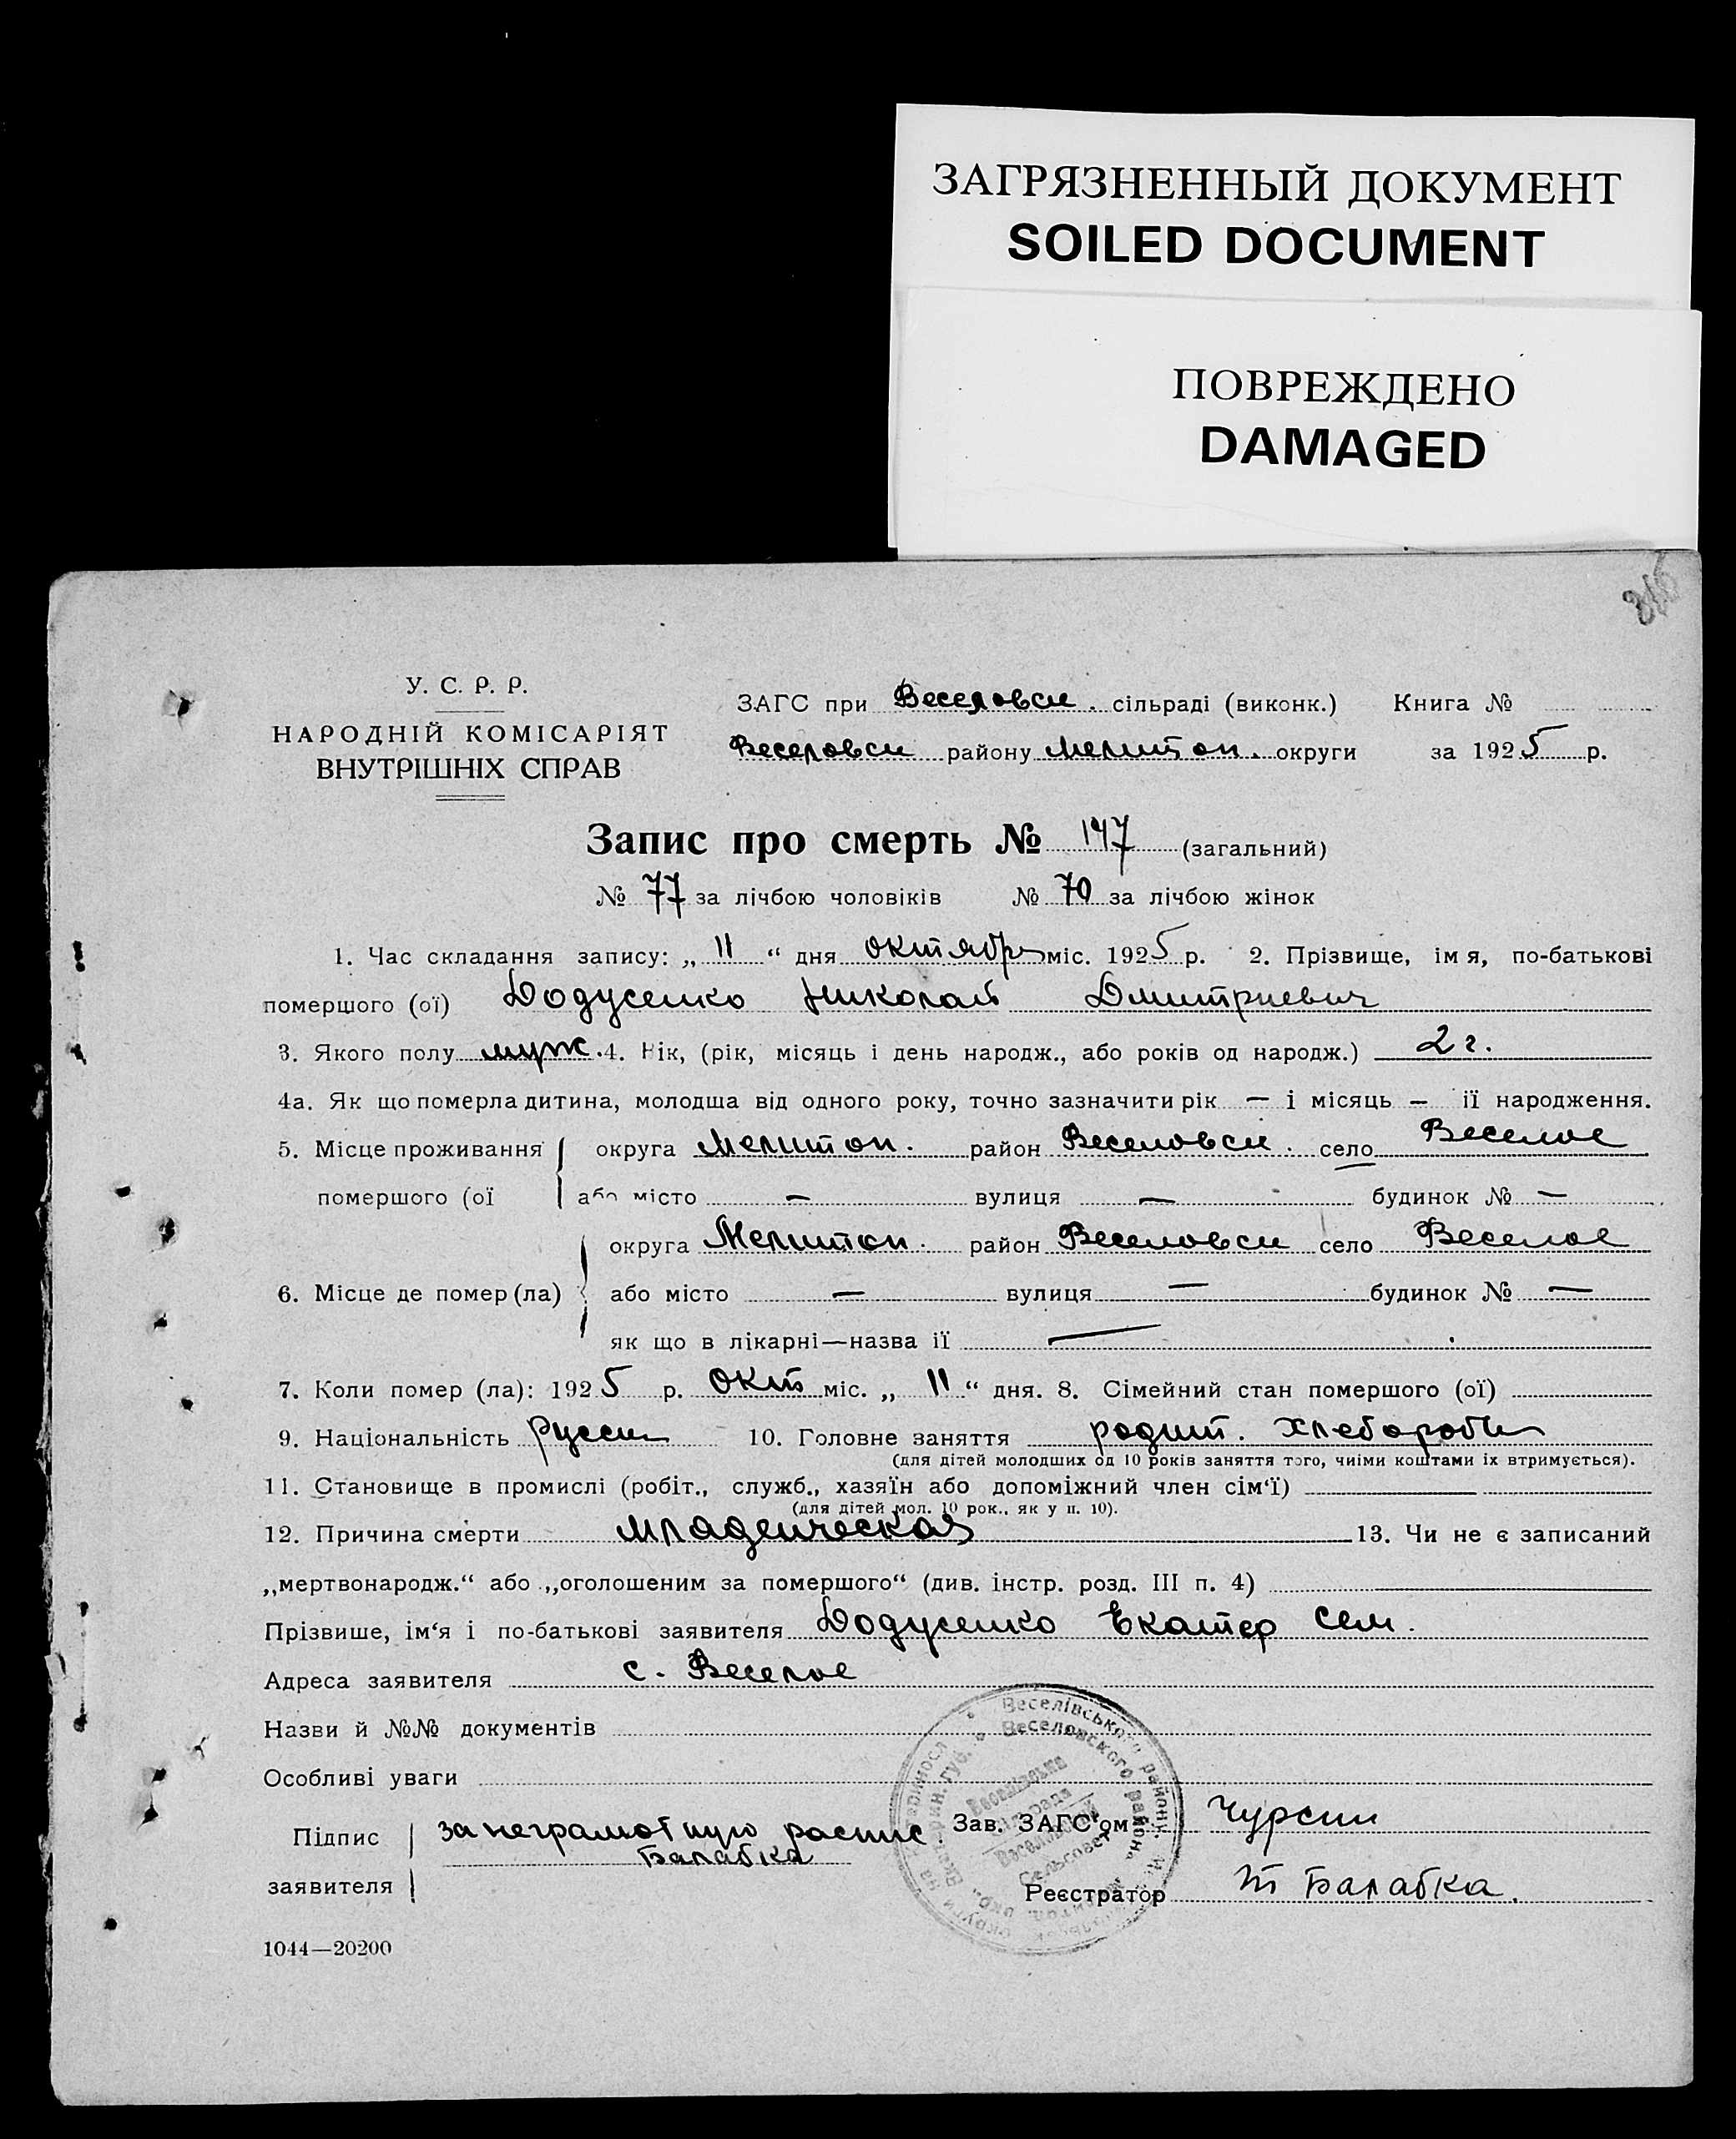 ЗАГРЯЗНЕННЫЙ ДОКУМЕНТ
SOILED DOCUMENT
ПОВРЕЖДЕНО
DAMAGED
У. С. Р. Р.
НАРОДНІЙ КОМІСАРІЯТ
ВНУТРІШНІХ СПРАВ
ЗАГС при Веселовск. сільраді (виконк.) Книга №
Веселовск району Мелитоп. округи за 1925 р.
Запис про смерть № 147 (загальний)
№ 77 за лічбою чоловіків № 70 за лічбою жінок
1. Час складання запису: „ 11 “ дня октября міс. 1925 р. 2. Прізвище, імя, по-батькові
помершого (ої) Додусенко Николай Дмитриевич
3. Якого полу муж. 4. Рік, (рік, місяць і день народж., або років од народж.) 2 г.
4а. Як що померла дитина, молодша від одного року, точно зазначити рік — і місяць — її народження.
5. Місце проживання округа Мелитоп. район Веселовск. село Веселое
помершого (ої або місто — вулиця — будинок № —
округа Мелитоп. район Веселовск село Веселое
6. Місце де помер (ла) або місто — вулиця — будинок № —
як що в лікарні—назва її —
7. Коли помер (ла): 1925 р. окт міс. „ 11 “ дня. 8. Сімейний стан помершого (ої)
9. Національність русск 10. Головне заняття родит. хлебороб
(для дітей молодших од 10 років заняття того, чиїми коштами їх втримується).
11. Становище в промислі (робіт., служб., хазяїн або допоміжний член сім‘ї)
(для дітей мол. 10 рок., як у п. 10).
12. Причина смерти младенческая 13. Чи не є записаний
„мертвонародж.“ або „оголошеним за помершого“ (див. інстр. розд. III п. 4)
Прізвише, ім‘я і по-батькові заявителя Додусенко Екатер Сем.
Адреса заявителя с. Веселое
Назви й №№ документів
Особливі уваги
Підпис за неграмотную распис Зав. ЗАГС‘ом Чурсин
Балабка
заявителя Реєстратор Т Балабка.
Веселівського району
Веселовского района
Сельсовет
1044—20200